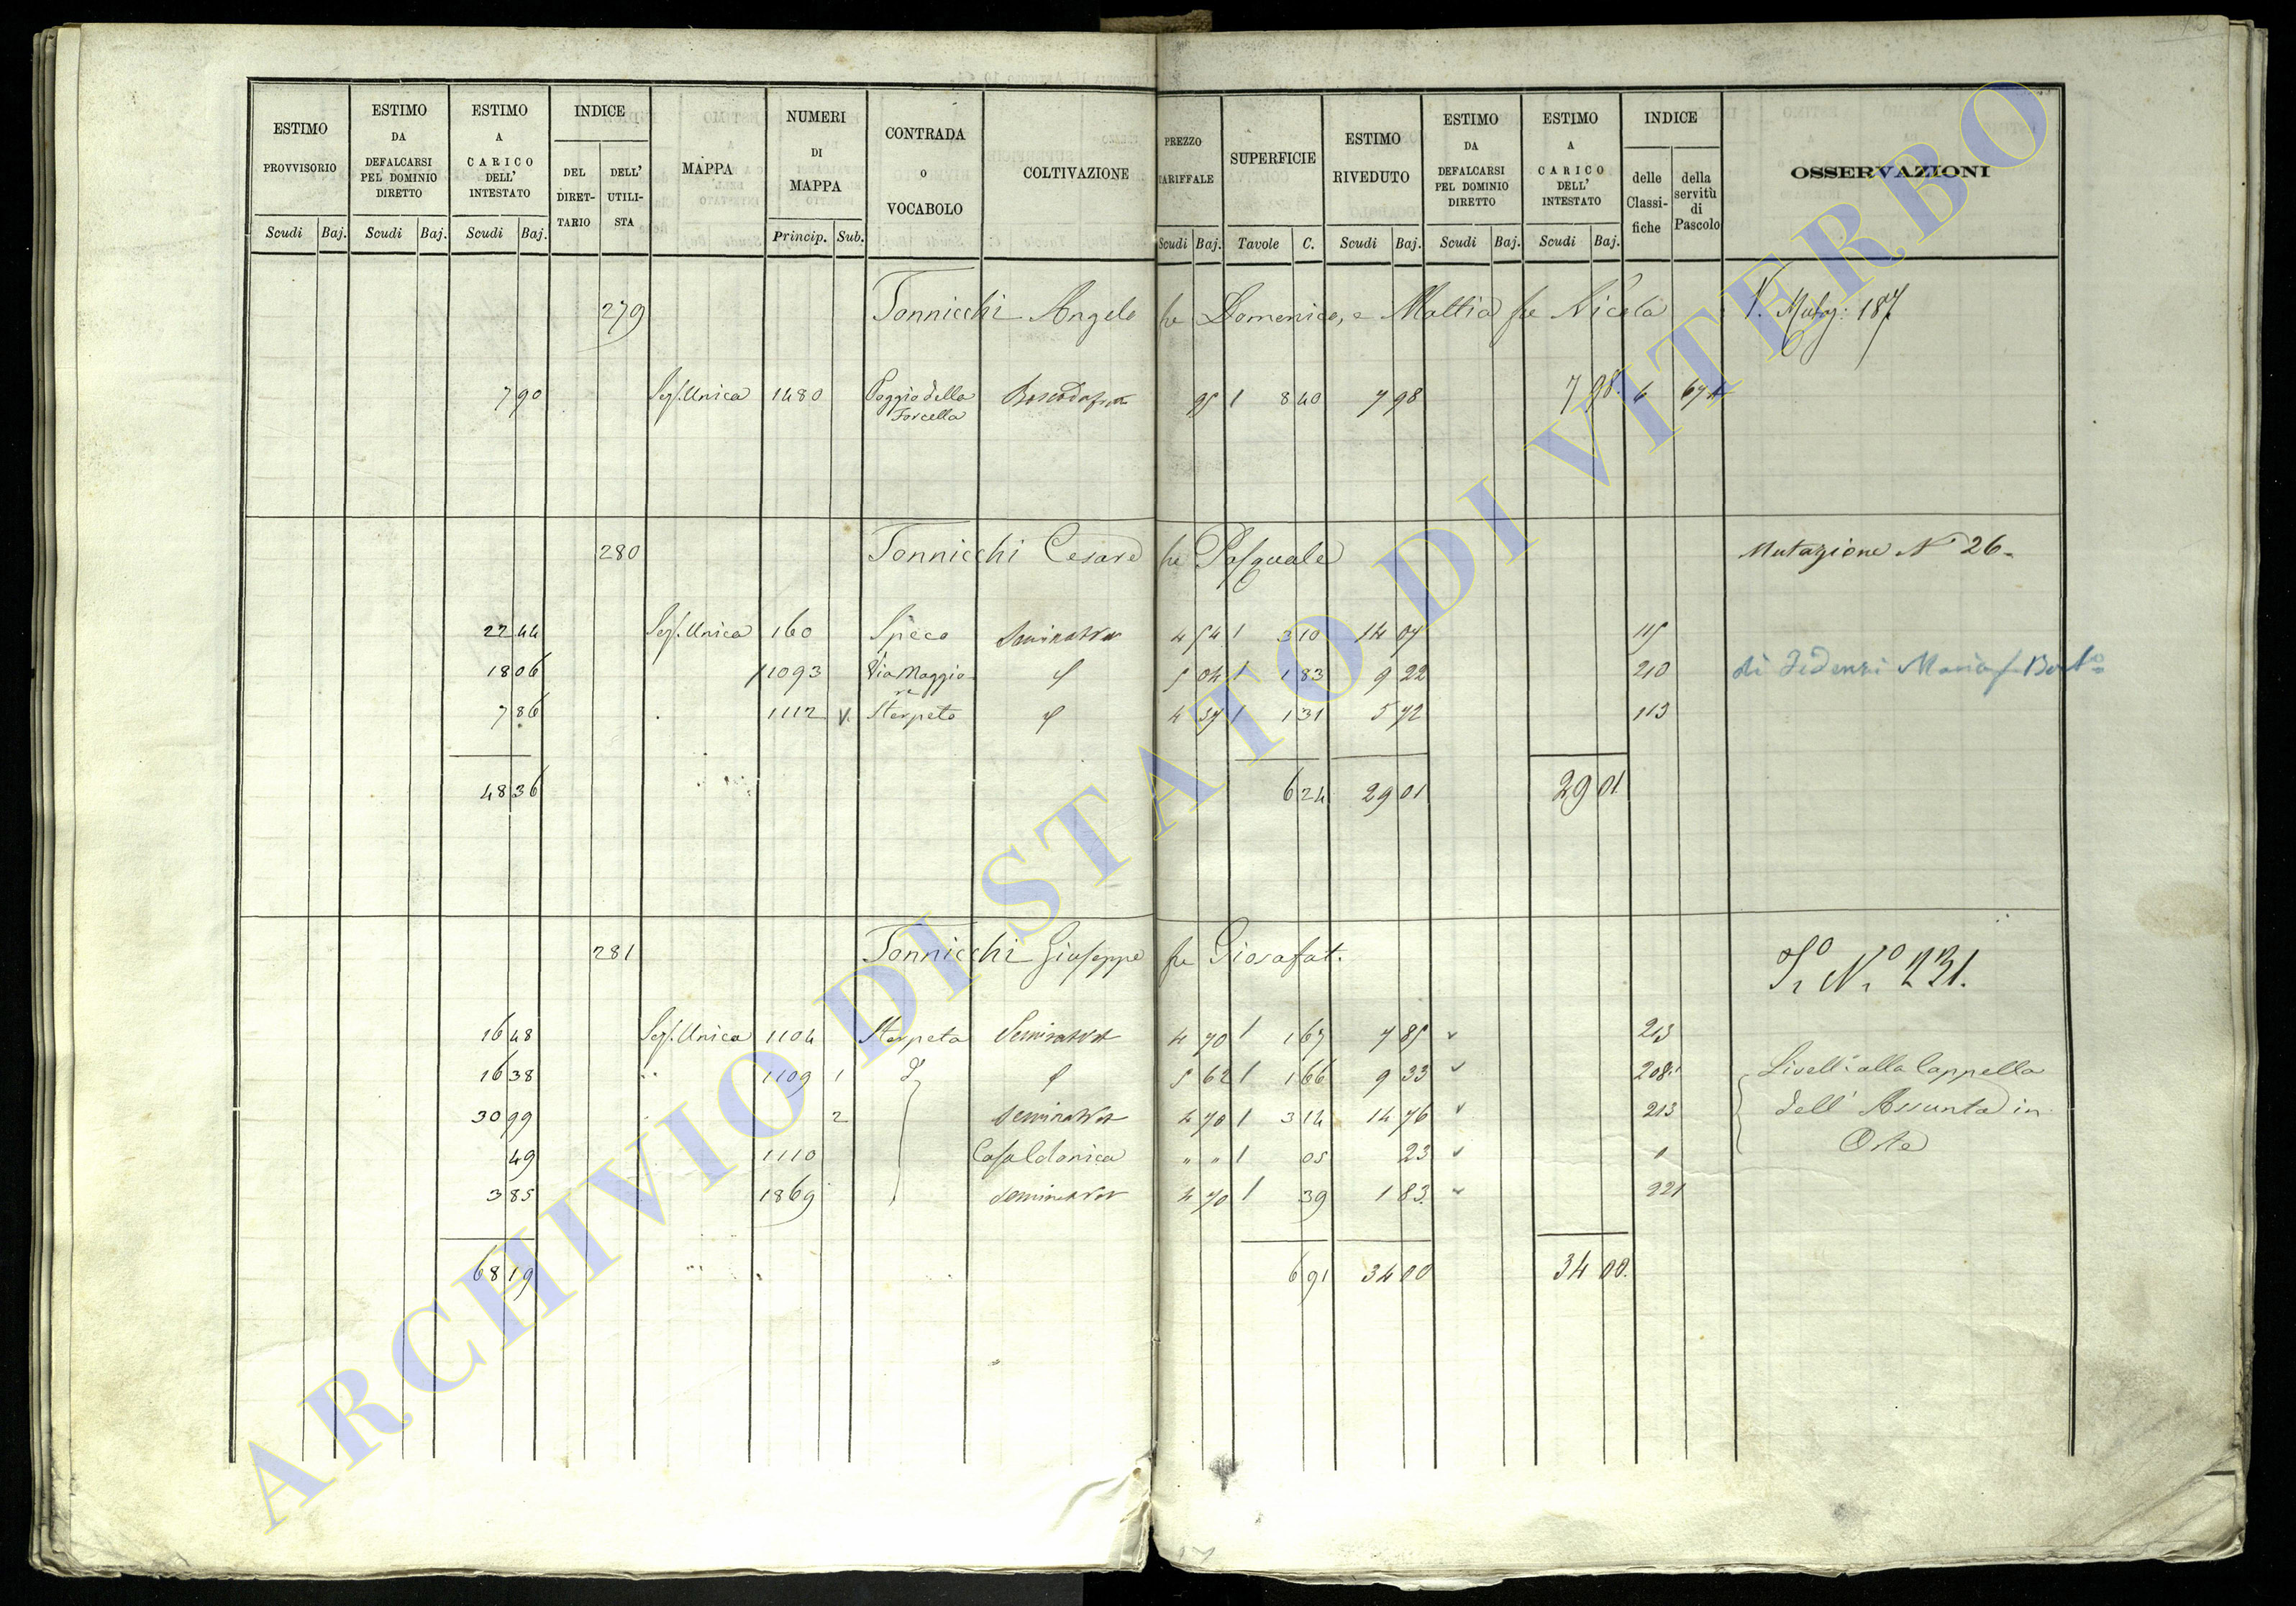 ESTIMO PROVVISORIO Scudi Baj.
ESTIMO DA DEFALCARSI PEL DOMINIO DIRETTO Scudi Baj.
ESTIMO A CARICO DELL' INTESTATO Scudi Baj.
INDICE DEL DIRET-TARIO DELL' UTILI-STA
MAPPA
NUMERI DI MAPPA Princip. Sub.
CONTRADA O VOCABOLO
COLTIVAZIONE
PREZZO TARIFFALE Scudi Baj.
SUPERFICIE Tavole C.
ESTIMO RIVEDUTO Scudi Baj.
ESTIMO DA DEFALCARSI PEL DOMINIO DIRETTO Scudi Baj.
ESTIMO A CARICO DELL' INTESTATO Scudi Baj.
INDICE delle Classi-fiche della servitù di Pascolo
OSSERVAZIONI
279 Tonnicchi Angelo fu Domenico, e Mattia fu Nicola
7 90 Sez. Unica 1480 Poggio della Forcella 95 1 8 40 7 98 7 98 6
280 Tonnicchi Cesare fu Pasquale Mutazione N 26
22 44 Sez. Unica 160 Speco Seminativo 4 54 1 3 10 14 07 115
18 06 1093 Via Maggiore 5 04 1 1 83 9 22 210
7 86 1112 Sterpeto 4 37 1 1 31 5 72 113
48 36 6 24 29 01 29 01
281 Tonnicchi Giuseppe fu Giosafat. N° 231.
16 48 Sez. Unica 1104 Sterpeto Seminativo 4 70 1 1 67 7 85 213
16 38 1109 1 5 62 1 1 66 9 33 208 Livell. alla Cappella
30 99 2 Seminativo 4 70 1 3 14 14 76 213 dell' Assunta in
49 1110 Casa Colonica " " 1 05 23 Orte
3 85 1869 Seminativo 4 70 1 39 1 83 221
68 19 6 91 34 00 34 00.
ARCHIVIO DI STATO DI VITERBO